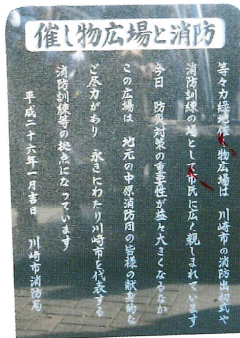 催し物広場と消防
等々力緑地催し物広場は 川崎市の消防出初式や
消防訓練の場として市民に広く親しまれています
今日 防災対策の重要性が益々大きくなるなか
この広場は 地元の中原消防団の皆様の献身的な
ご尽力があり 永きにわたり川崎市を代表する
消防訓練等の拠点になっています
平成二十六年一月吉日 川崎市消防局